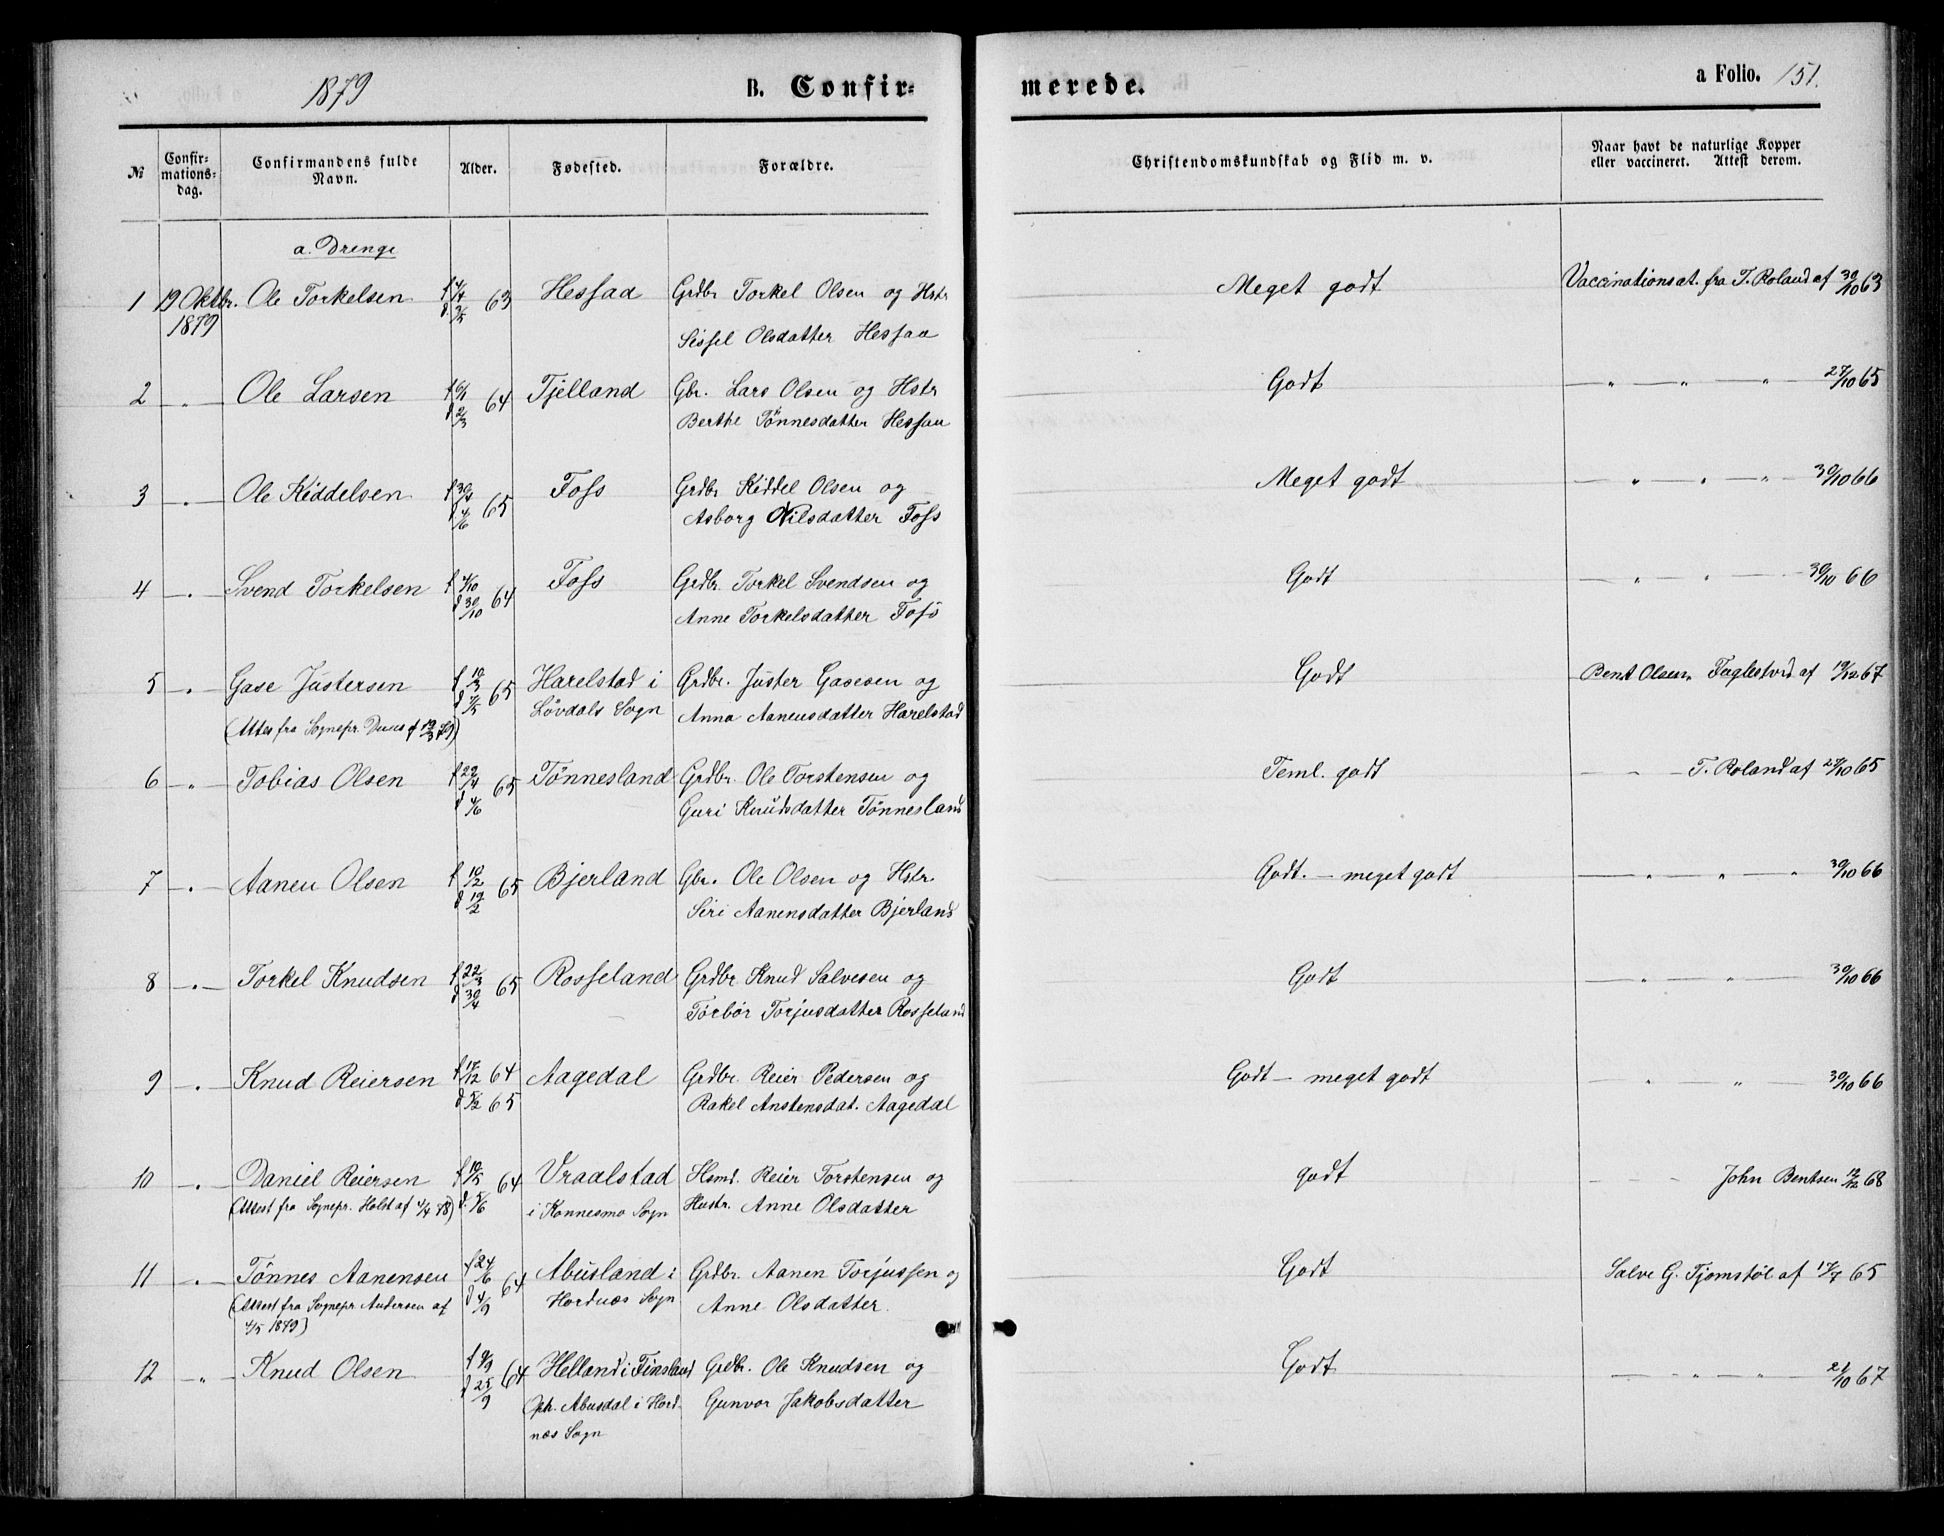 1879 B. Confir= merede. a Folio. 151.
№ Confir=mations=dag. Confirmandens fulde Navn. Alder. Fødested. Forældre. Christendomskundskab og Flid m. v. Naar havt de naturlige Kopper eller vaccineret. Attest derom.
a. Drenge
1 19 Oktbr. Ole Torkelsen 63 Hessaa Grdbr Torkel Olsen og Hstr Meget godt Vaccinationsat. fra T. Roland af 30/10 63
1879 Sissel Olsdatter Hessaa
2 " Ole Larsen 64 Tjelland Gbr. Lars Olsen og Hstr Godt " " " 27/10 65
Berthe Tönnesdatter Hessaa
3 " Ole Kiddelsen f 30/4 65 Foss Grdbr Kiddel Olsen og Meget godt " " " 30/10 66
d 4/6 Asborg Nilsdatter Foss
4 " Svend Torkelsen f 4/10 64 Foss Grdbr. Torkel Svendsen og Godt " " 30/10 66
d 30/10 Anne Torkelsdatter Foss
5 " Gase Justersen f 10/3 65 Harelstad i Grdbr. Juster Gasesen og Godt Bent Olsen Faglestvid af 19/12 67
Lövdals Sogn Anna Aanensdatter Harelstad
(Attes fra Sognepr.
6 " Tobias Olsen f 29/4 65 Tönnesland Grdbr. Ole Torstensen og Teml. godt T. Roland af 27/10 65
d 4/6 Guri Knudsdatter Tönnesland
7 " Aanen Olsen f 10/2 65 Bjerland Gbr. Ole Olsen og Hstr. Godt. – meget godt " " " 30/10 66
d 19/2 Siri Aanensdatter Bjerland
8 " Torkel Knudsen f 22/3 65 Rosseland Grdbr Knud Salvesen og Godt " " 30/10 66
d 30/4 Torbör Torjusdatter Rosseland
9 " Knud Reiersen f 17/12 64 Aagedal Grdbr. Reier Pedersen og Godt – meget godt " " 30/10 66
d 5/2 65 Rakel Anstensdat. Aagedal
10 " Daniel Reiersen f 10/5 64 Vraalstad Hsmd. Reier Torstensen og godt John Bentsen 12/12 68
(Attest fra Sognepr. Holst af 4/4 78) d. 5/6 i Konnesmo Sogn Hustr. Anne Olsdatter
11 " Tönnes Aanensen f 24/6 64 Abusland i Grdbr. Aanen Torjussen og Godt Salve G. Tjomstöl af 17/7 65
(Attest fra Sognepr Andersen af d 4/9 Hordnæs Sogn Anne Olsdatter.
4/5 1879)
12 " Knud Olsen f 9/9 64 Helland i Finsland Grdbr. Ole Knudsen og Godt " " " 21/10 67
d 25/9 Oph. Abusdal i Hord- Gunvor Jakobsdatter
næs Sogn